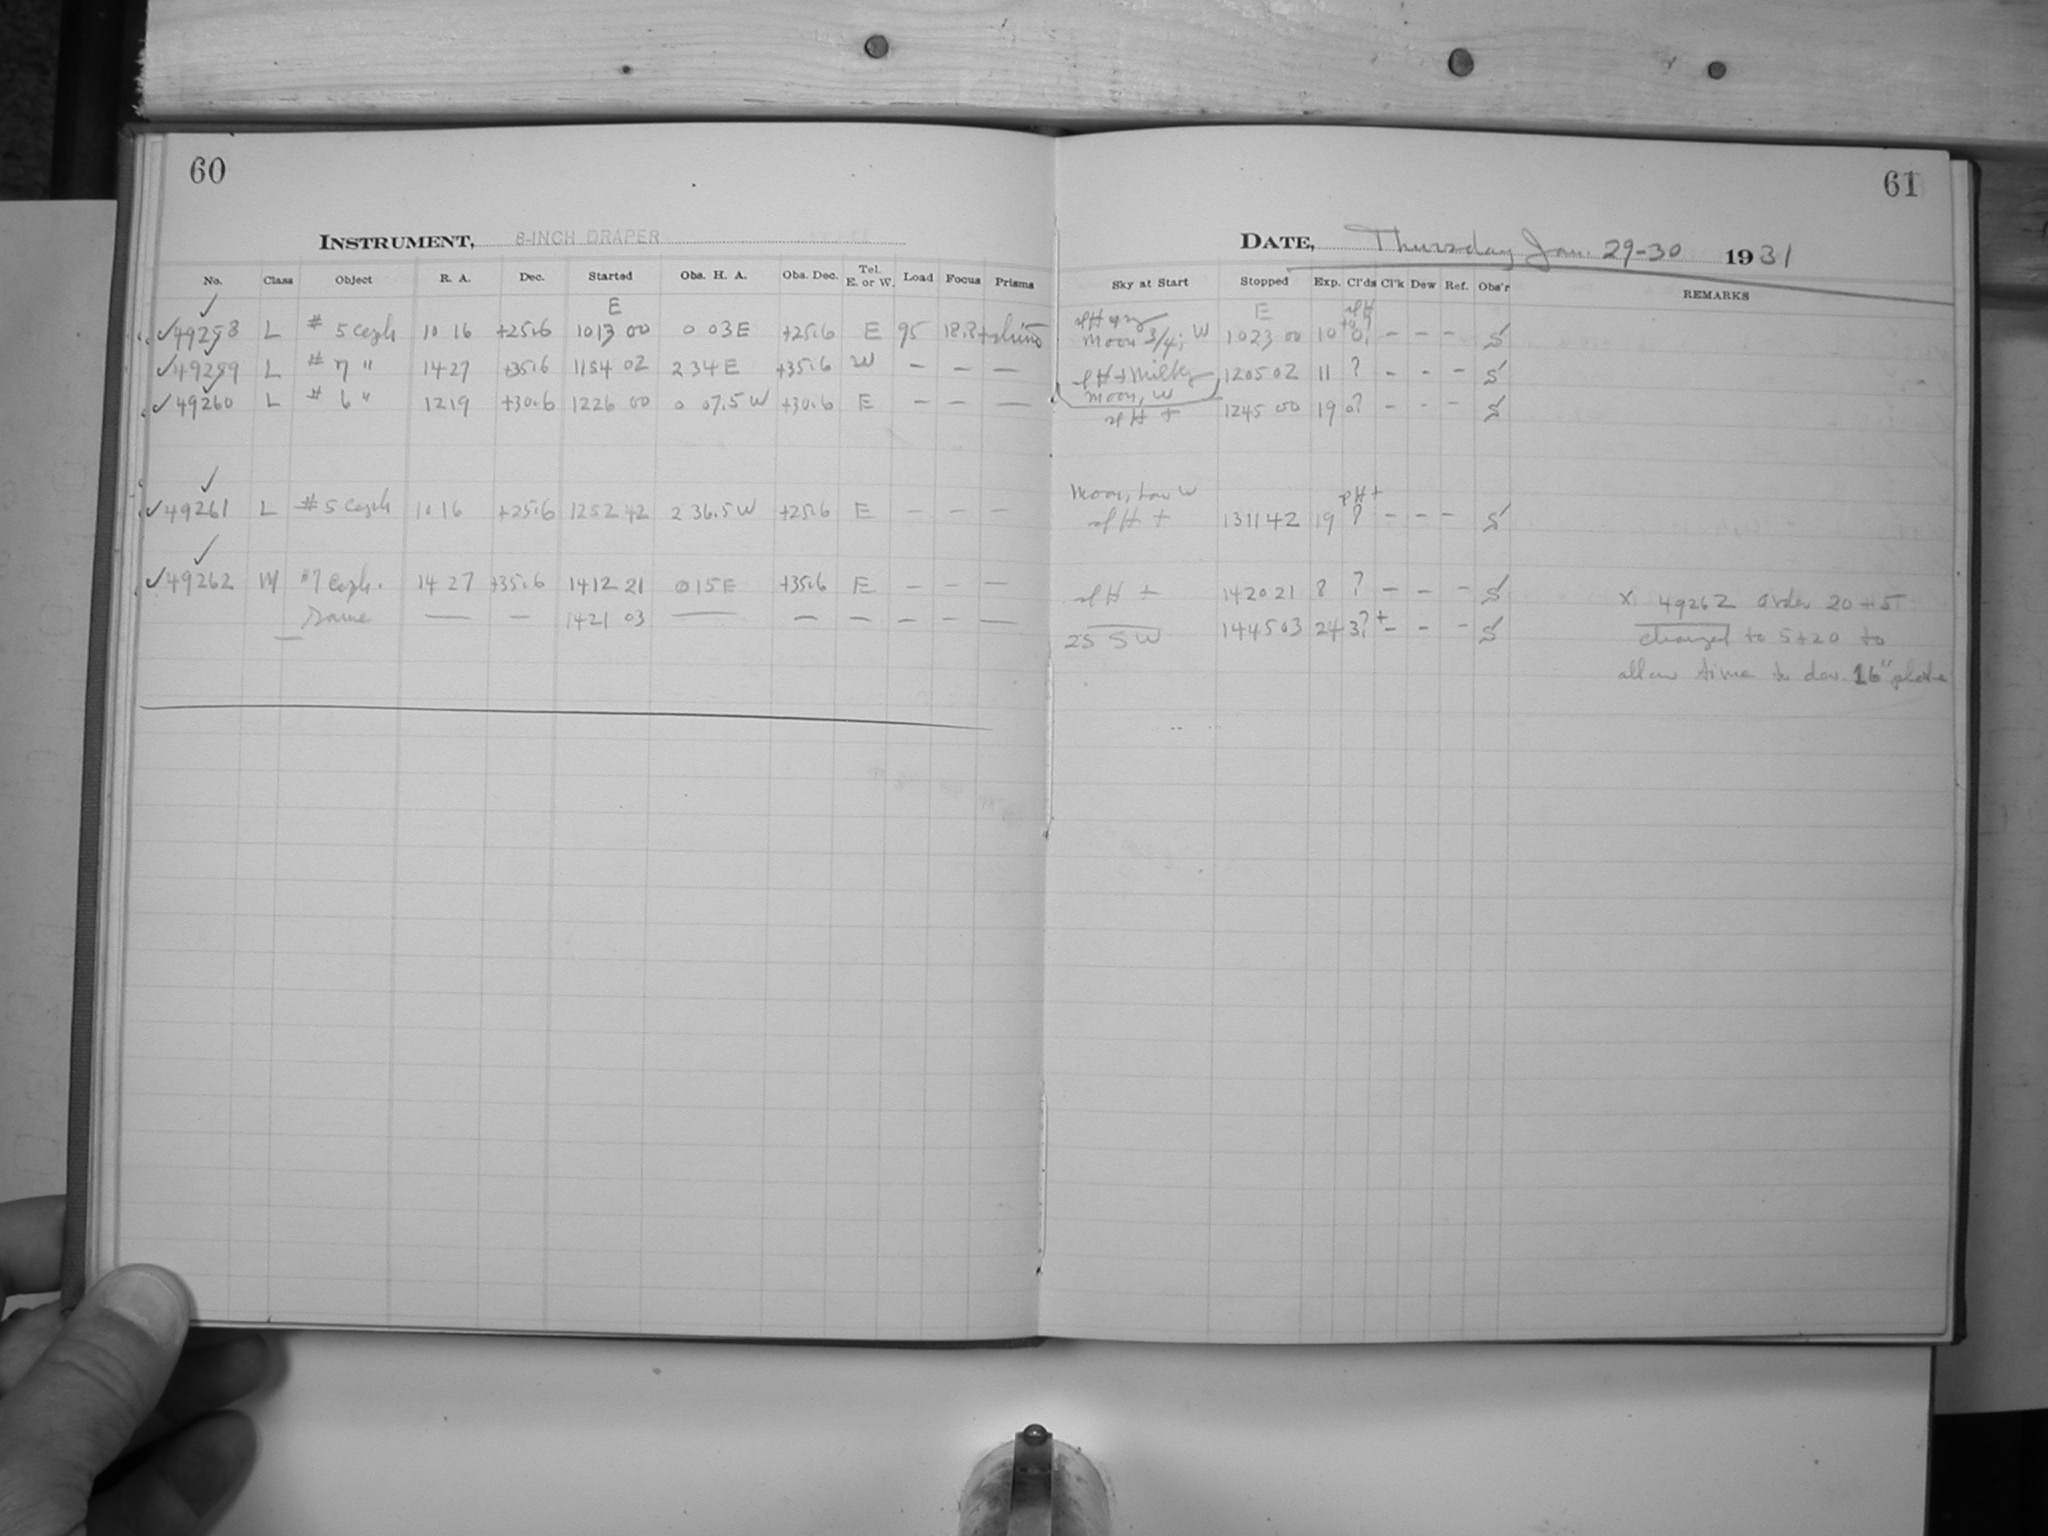 60
INSTRUMENT, 8-INCH DRAPER
No. Class Object R. A. Dec. Started Obs. H. A. Obs. Dec. Tel. E. or W. Load Focus Prisms
E
49258 L # 5 Ceph 10 16 +25.6 1013 00 0 03 E +25.6 E 95 18.8
49259 L # 7 " 14 27 +35.6 1154 02 2 34 E +35.6 W — — —
49260 L # 6 " 12 19 +30.6 1226 00 0 07.5 W +30.6 E — — —
49261 L # 5 Ceph 10 16 +25.6 1252 42 2 36.5 W +25.6 E — — —
49262 M #7 Ceph. 14 27 +35.6 1412 21 0 15 E +35.6 E — — —
Same — — 1421 03 — — — — — —
61
DATE, Thursday Jan. 29-30 1931
Sky at Start Stopped Exp. Cl'ds Cl'k Dew Ref. Obs'r REMARKS
E
Moon 3/4; W 1023 00 10 0? — — — S
Milky 1205 02 11 ? - - — S
Moon, W
H + 1245 00 19 0? - - — S
Moon, low W
H + 1311 42 19 ? — — — S
H + 1420 21 8 ? — — — S
25 SW 1445 03 24 3? + - - — S
x 49262 order 20 + 5
changed to 5+20 to
allow time to dev. 16" plate